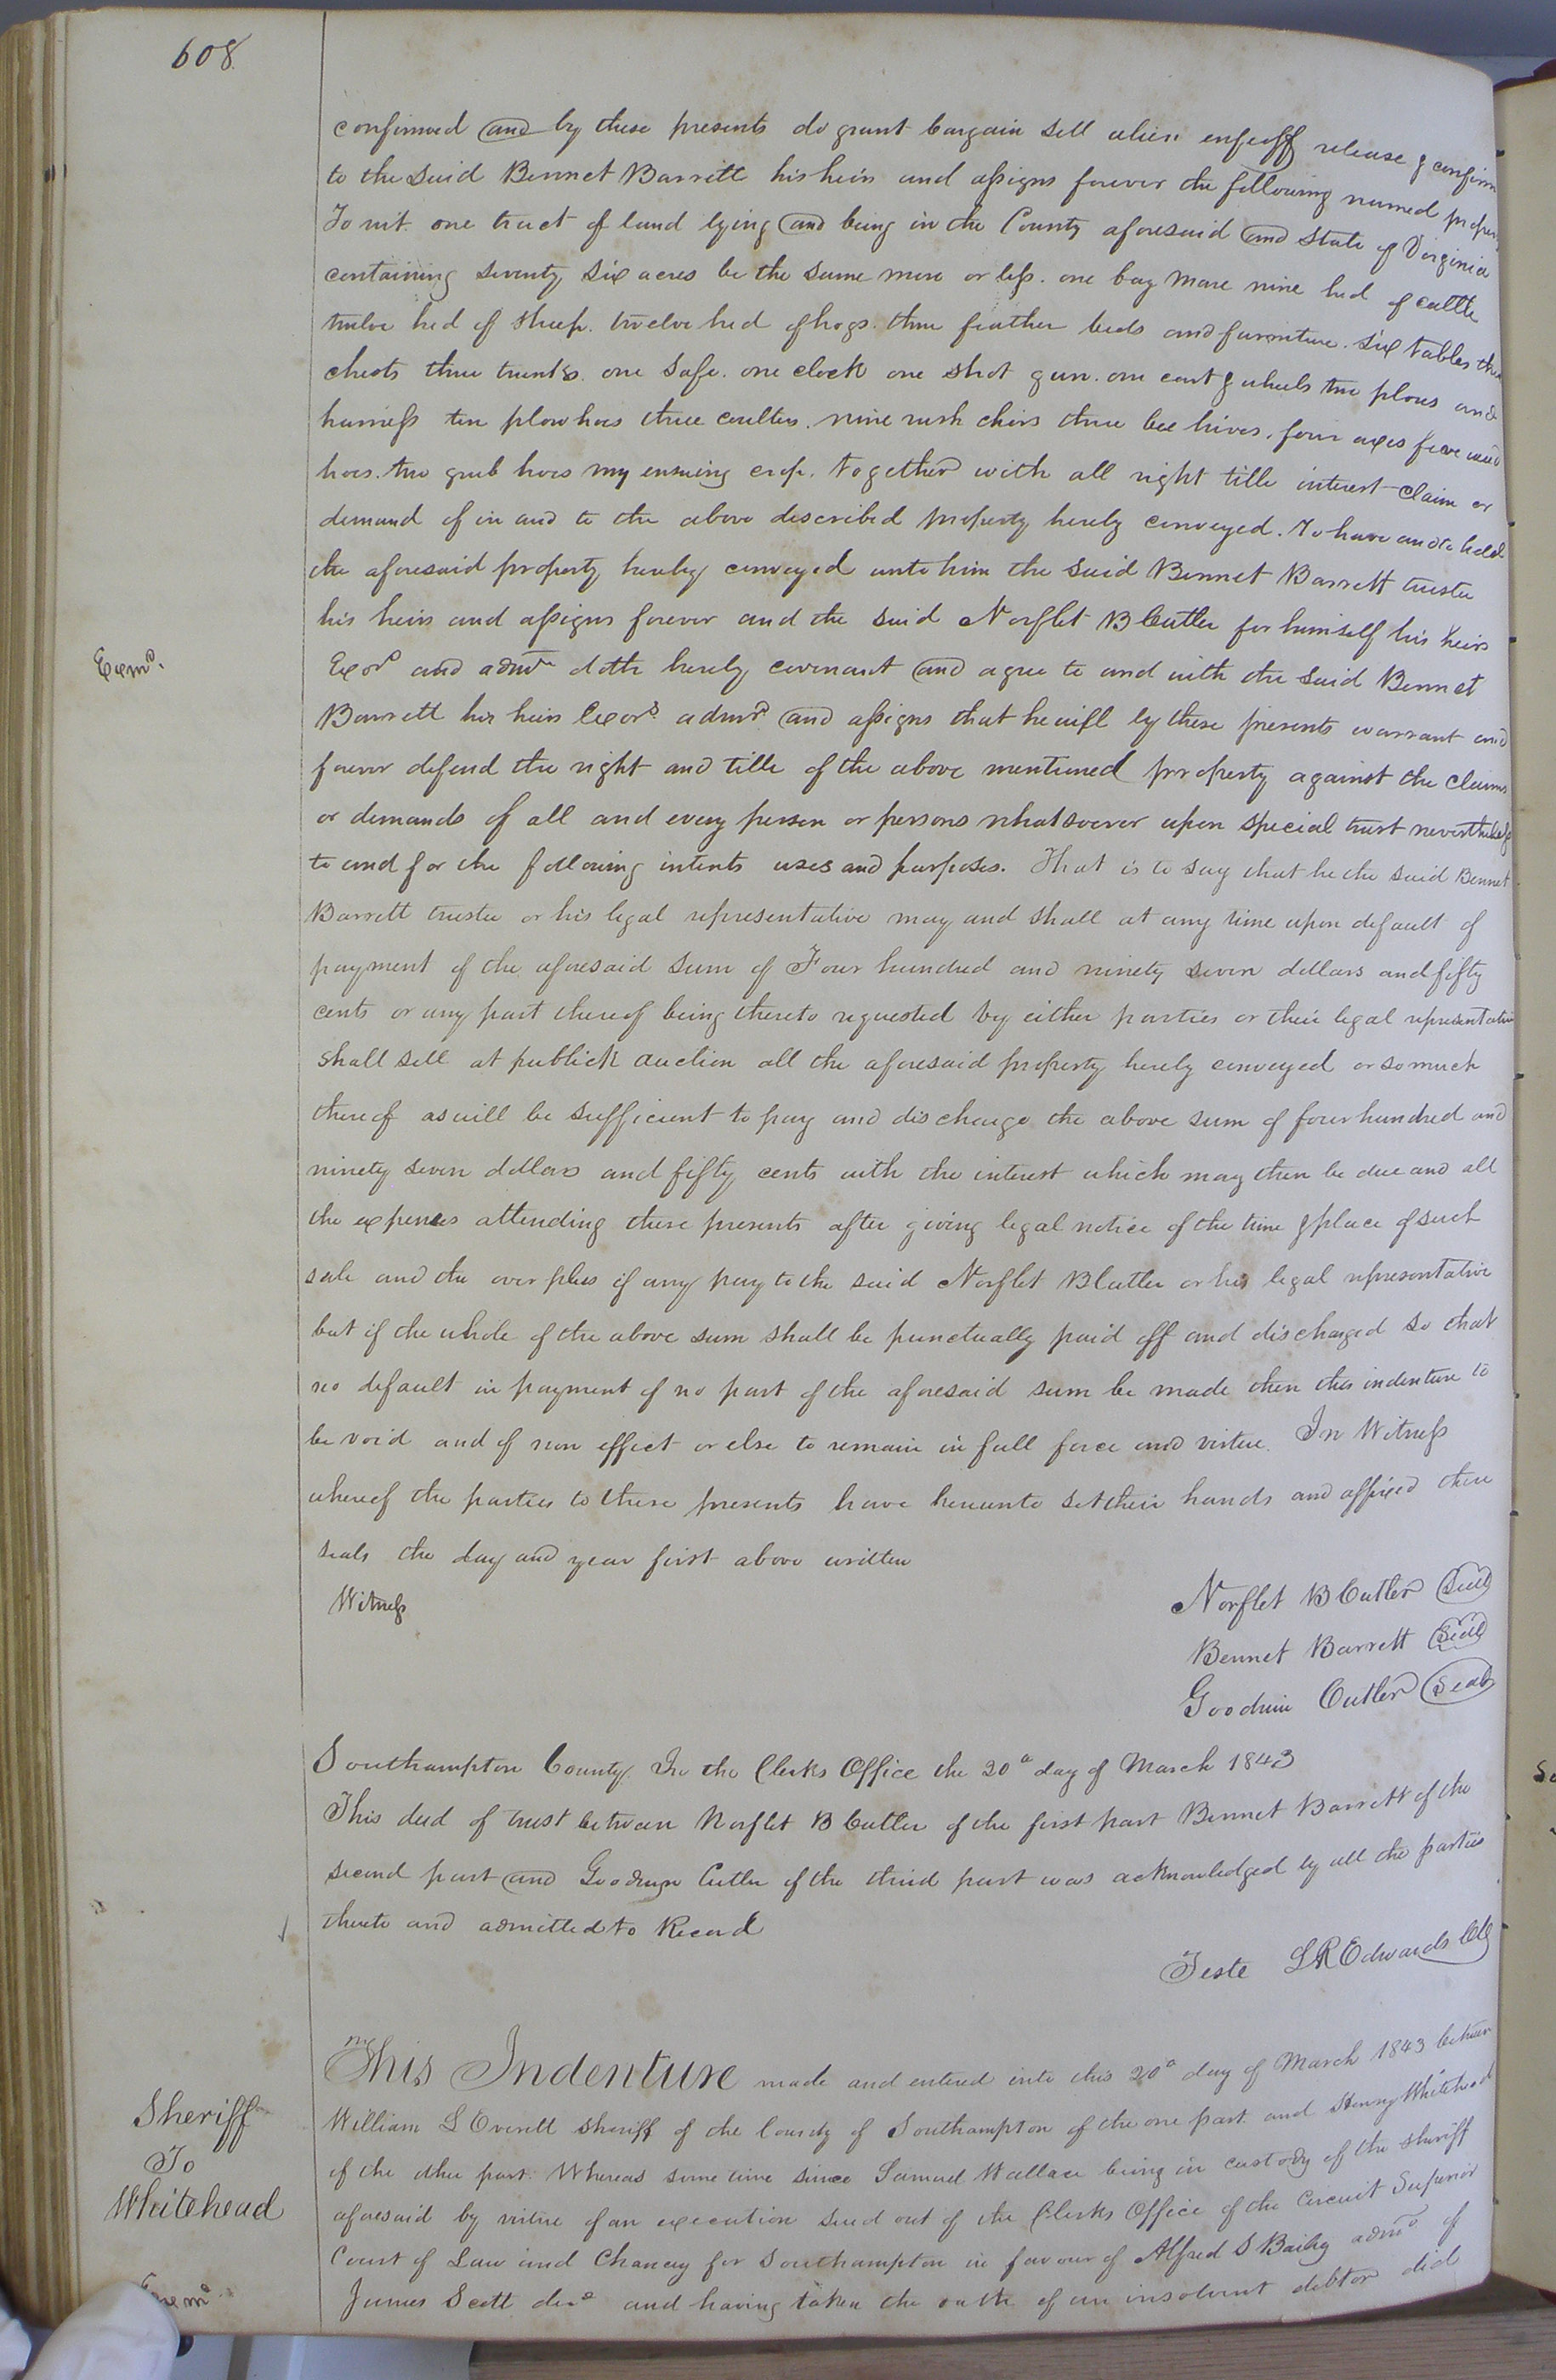 608
confirmed and by these presents do grant bargain sell alien enfeoff release & confirm
to the said Bennet Barrett his heirs and assigns forever the following named
To wit. one tract of land lying and being in the County aforesaid and State of Virginia
containing seventy six acres be the same more or less. one bay mare nine hed of cattle
twelve hed of sheep. twelve hed of hogs. three feather beds and furniture. six tables
chests three trunks. one safe. one clock one shot gun. one cart & wheels two plows and
harness ten plow hoes three coulters. nine rush chirs three bee hives. four axes five
hoes. two grub hoes my ensuing crop. together with all right title interest claim or
demand of in and to the above described property hereby conveyed. To have and to hold
the aforesaid property hereby conveyed unto him the said Bennet Barrett trustee
his heirs and assigns forever and the said Norflet B Cutler for himself his heirs
Exmd.
Exors and admrs doth hereby covenant and agree to and with the said Bennet
Barrett his heirs Exors. admrs and assigns that he will by these presents warrant and
forever defend the right and title of the above mentioned property against the claims
or demands of all and every person or persons whatsoever upon special trust nevertheless
to and for the following intents uses and purposes. That is to say that he the said Bennet
Barrett trustee or his legal representative may and shall at any time upon default of
payment of the aforesaid sum of Four hundred and ninety seven dollars and fifty
cents or any part thereof being thereto requested by either parties or their legal representative
shall sell at publick auction all the aforesaid property hereby conveyed or so much
thereof as will be sufficient to pay and discharge the above sum of four hundred and
ninety seven dollars and fifty cents with the interest which may then be due and all
the expenses attending these presents after giving legal notice of the time & place of such
sale and the over plus if any pay to the said Norflet B Cutler or his legal representative
but if the whole of the above sum shall be punctually paid off and discharged so that
no default in payment of no part of the aforesaid sum be made then this indenture to
be void and of non effect or else to remain in full force and virtue. In Witness
whereof the parties to these presents have hereunto set their hands and affixed their
seals the day and year first above written
Witness
Norflet B Cutler Seal
Bennet Barrett Seal
Goodwin Cutler Seal
Southampton County. In the Clerks Office the 20th day of March 1843
This deed of trust between Norflet B Cutler of the first part Bennet Barrett of the
second part and Goodwyn Cutler of the third part was acknowledged by all the parties
thereto and admitted to Record
Teste L R Edwards Clk
This Indenture made and entered into this 20th day of March 1843 between
William L Everett Sheriff of the County of Southampton of the one part and Henry Whitehead
Sheriff
To
Whitehead
of the other part. Whereas some time since Samuel Wallace being in custody of the sheriff
aforesaid by virtue of an execution sued out of the Clerks Office of the Circuit Superior
Court of Law and Chancey for Southampton in favour of Alfred S Bailey admr of
Exmd
James Scott decd and having taken the oath of an insolvent debtor did